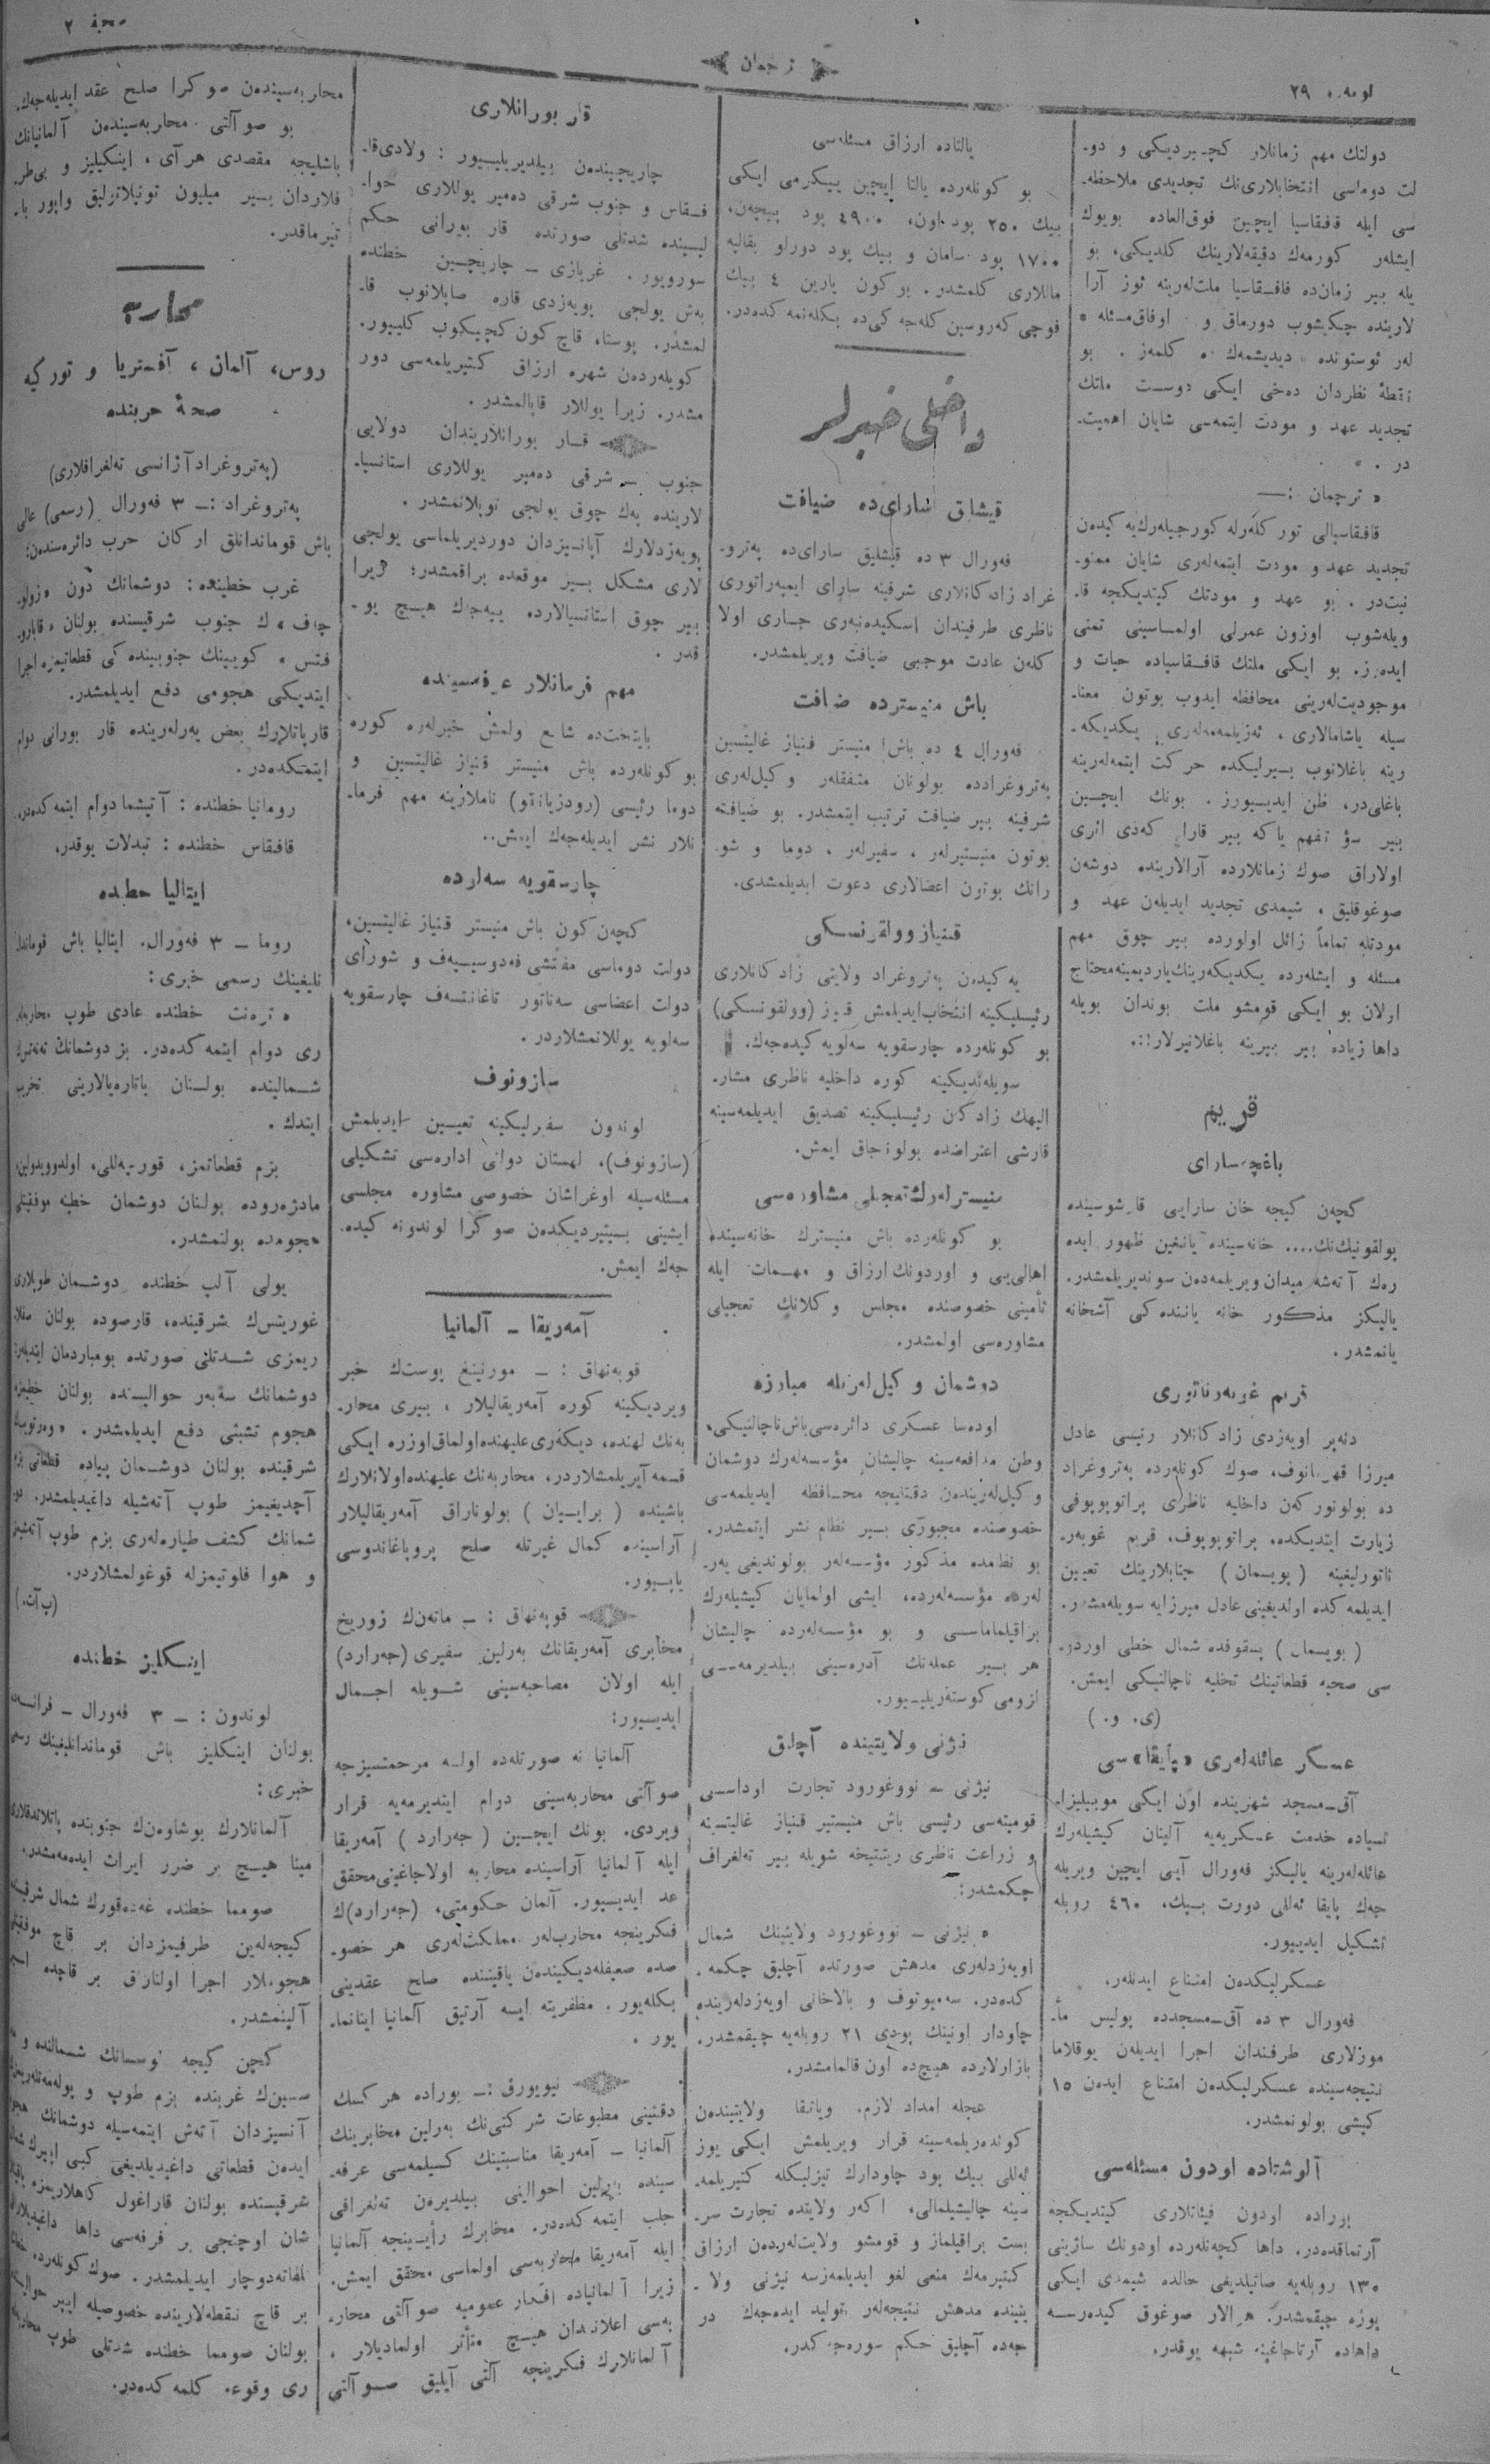 صحیفه ٢
ترجمان
نومه‌ره ٢٩
دولتك مهم زمانلار كچیردیكی و دو-
لت دوماسی انتخابلاری‌نك تجدیدی ملاحظه-
سی ایله قافقاسیا ایچین فوق‌العاده بویوك
ایشلەر كورمەك دقیقەلارینك كلدیكی، بو
یله بیر زمان‌ده قافقاسیا ملت‌لەرینە ئوز آرا
لارینده چكیشوب دورماق و اوفاق مسئله
لەر ئوستونده دیدیشمەك كلمەز. بو
نقطهٔ نظردان دەخی ایكی دوست ملتك
تجدید عهد و مودت ایتمەسی شایان اهمیت-
در.
ترجمان :—
قافقاسیالی تورك‌لەرله كورجیلەرك یه كیدەن
تجدید عهد و مودت ایتمەلەری شایان ممنو-
نیت‌در. بو عهد و مودتك كیتدیكجه قا-
ویله‌شوب اوزون عمرلی اولماسینی تمنی
ایدەرز. بو ایكی ملتك قافقاسیاده حیات و
موجودیت‌لەرینی محافظه ایدوب بوتون معنا-
سیله یاشامالاری، ئەزیلمەمەلەری یكدیكە-
رینه باغلانوب بیرلیكده حركت ایتمەلەرینه
باغلی‌در، ظن ایدییورز. بونك ایچین
بیر سؤ تفهم یاكه بیر قارا كەدی اثری
اولاراق صوك زمانلارده آرالارینده دوشەن
صوغوقلیق، شیمدی تجدید ایدیلەن عهد و
مودتله تماماً زائل اولورده بیر چوق مهم
مسئله و ایشلەرده یكدیكەرینك یاردیمینه محتاج
ارلان بو ایكی قومشو ملت بوندان بویله
داها زیاده بیر بیرینه باغلانیرلار!!.
قریم
باغچه سارای
كچەن كیجه خان سارایی قارشوسینده
پولقونیك‌نك.... خانەسینده یانغین ظهور ایده
رەك آتەشە میدان ویریلمەدەن سوندیریلمشدر.
یالیكز مذكور خانه یاننده كی آشخانه
یانمشدر.
قریم غوبەرناتوری
دنەپر اویەزدی زادكانلار رئیسی عادل
میرزا قهرمانوف، صوك كونلەرده پەتروغراد
ده بولونوركەن داخلیه ناظری پراتوپوپوفی
زیارت ایتدیكده، پراتوپوپوف، قریم غوبەر-
ناتورلیغینه (بویسمان) جنابلارینك تعیین
ایدیلمەكده اولدیغینی عادل میرزایه سویلەمشدر.
(بویسمان) پسقوفده شمال خطی اوردو-
سی صحیه قطعاتینك تخلیه ناچالنیكی ایمش.
(ی. و.)
عسكر عائله‌لەری «پایقا» سی
آق-مسجد شهرینده اون ایكی موبیلیزا-
تسیاده خدمت عسكریەیه آلینان كیشیلەرك
عائله‌لەرینه یالیكز فەورال آیی ایچین ویریله
جەك پایقا ئەللی دورت بیك، ٤٦٠ روبله
تشكیل ایدییور.
عسكرلیكدەن امتناع ایدنلەر.
فەورال ٣ ده آق-مسجدده پولیس مأ-
موزلاری طرفندان اجرا ایدیلەن یوقلاما
نتیجەسینده عسكرلیكدەن امتناع ایدەن ١٥
كیشی بولونمشدر.
آلوشتاده اودون مسئله‌سی
بوراده اودون فیئاتلاری كیتدیكجه
آرتماقده‌در. داها كچەنلەرده اودونك ساژینی
١٣٠ روبلەیه صاتیلدیغی حالده شیمدی ایكی
یوزه چیقمشدر. هرالار صوغوق كیدەرسه
داهاده آرتاجاغینه شبهه یوقدر.
یالتاده ارزاق مسئله‌سی
بو كونلەرده یالتا ایچین ییكرمی ایكی
بیك ٢٥٠ پود اون، ٤٩٠٠ پود پیچەن،
١٧٠٠ پود سامان و بیك پود دورلو بقالیه
ماللاری كلمشدر. بو كون یارین ٤ بیك
فوچی كەروسین كله‌جه كی‌ده بكله‌نمه كده‌در.
داخلی خبرلر
قیشلق سارای‌ده ضیافت
فەورال ٣ ده قیشلیق سارای‌ده پەترو-
غراد زادكانلاری شرفینه سارای ایمپەراتوری
ناظری طرفیندان اسكیدەنبەری جاری اولا
كلەن عادت موجبی ضیافت ویریلمشدر.
باش منیسترده ضیافت
فەورال ٤ ده باش منیستر قنیاز غالیتسین
پەتروغرادده بولونان متفقلەر وكیل‌لەری
شرفینه بیر ضیافت ترتیب ایتمشدر. بو ضیافته
بوتون منیستیرلەر، سفیرلەر، دوما و شو-
رانك بوتون اعضالاری دعوت ایدیلمشدی.
قنیاز وولقونسكی
یه كیدەن پەتروغراد ولایتی زادكانلاری
رئیسلیكینه انتخاب ایدیلمش قنیاز (وولقونسكی)
بو كونلەرده چارسقویه سەلویه كیدەجەك.
سویلەندیكینه كوره داخلیه ناظری مشار-
الیهك زادكان رئیسلیكینه تصدیق ایدیلمەسینه
قارشی اعتراضده بولوناجاق ایمش.
منیسترلەرك تعجیلی مشاوره‌سی
بو كونلەرده باش منیسترك خانەسینده
اهالی‌یی و اوردونك ارزاق و مهمات ایله
تأمینی خصوصنده مجلس وكلانك تعجیلی
مشاورەسی اولمشدر.
دوشمان وكیل‌لەریله مبارزه
اودەسا عسكری دائرەسی باش ناچالنیكی،
وطن مدافعەسینه چالیشان مؤسسەلەرك دوشمان
وكیل‌لەریندەن دقتانیجه محافظه ایدیلمەسی
خصوصنده مجبوری بیر نظام نشر ایتمشدر.
بو نظامده مذكور مؤسسەلەر بولوندیغی یەر-
لەرده مؤسسەلەرده، ایشی اولمایان كیشیلەرك
براقیلماماسی و بو مؤسسەلەرده چالیشان
هر بیر عملەنك آدرەسینی بیلدیرمەسی
لزومی كوستەریلییور.
نیژنی ولایتینده آچلق
نیژنی - نووغورود تجارت ارداسی
قومیتەسی رئیسی باش منیستیر قنیاز غالیتسینه
و زراعت ناظری ریتتیخه شویله بیر تەلغراف
چكمشدر:
نیژنی - نووغورود ولایتینك شمال
اویەزدلەری مدهش صورتده آچلیق چكمه-
كده‌در. سەمیونوف و بالاخانی اویەزدلەرینده
چاودار اونینك پودی ٢١ روبلەیه چیقمشدر.
بازارلارده هیچ‌ده اون قالمامشدر.
عجله امداد لازم. ویاتقا ولایتیندەن
كوندەریلمەسینه قرار ویریلمش ایكی یوز
ئەللی بیك پود چاودارك تیزلیكله كتیریلمە-
سینه چالیشیلمالی، اكەر ولایتده تجارت سر-
بست براقیلماز و قومشو ولایت‌لەردەن ارزاق
كتیرمەك منعی لغو ایدیلمەزسه نیژنی ولا-
یتینده مدهش نتیجەلەر تولید ایدەجەك در
جەده آچلیق حكم سورەجەكدر.
قار بورانلاری
چاریچیندەن بیلدیریلییور: ولادی‌قا-
فقاس و جنوب شرقی دەمیر یوللاری حوا-
لیسینده شدتلی صورتده قار بورانی حكم
سورویور. غریازی - چاریچین خطنده
بەش یولجی پویەزدی قاره صاپلانوب قا-
لمشدر. پوستا، قاچ كون كچیكوب كلییور.
كویلەردەن شهره ارزاق كتیریلمەسی دور
مشدر. زیرا یوللار قاپالمشدر.
قار بورانلاریندان دولایی
جنوب - شرقی دەمیر یوللاری استانسیا-
لارینده پەك چوق یولجی توپلانمشدر.
پویەزدلارك آپانسیزدان دوردیریلماسی یولجی
لاری مشكل بیر موقعده براقمشدر؛ زیرا
بیر چوق استانسیالارده ییەجك هیچ یو-
قدر.
مهم فرمانلار عرفه‌سینده
پایتخت‌ده شایع ولمش خبرلەره كوره
بو كونلەرده باش منیستر قنیاز غالیتسین و
دوما رئیسی (رودزیانقو) ناملارینه مهم فرما-
نلار نشر ایدیلەجەك ایمش..
چارسقویه سەلوده
كچەن كون باش منیستر قنیاز غالیتسین،
دولت دوماسی مفتشی فەدوسییەف و شورای
دولت اعضاسی سەناتور تاغانتسەف چارسقویه
سەلویه یوللانمشلاردر.
سازونوف
لوندون سفیرلیكینه تعیین ایدیلمش
(سازونوف)، لهستان دولتی ادارەسی تشكیلی
مسئلەسیله اوغراشان خصوصی مشاوره مجلسی
ایشینی بیتیردیكدەن صوكرا لوندونه كیده-
جەك ایمش.
آمەریقا - آلمانیا
قوپەنهاق: - مورنینغ پوست‌ك خبر
ویردیكینه كوره آمەریقالیلار، بیری محار-
بەنك لهنده، دیكەری علیهنده اولماق اوزره ایكی
قسمه آیریلمشلاردر، محاربەنك علیهنده اولانلارك
باشینده (برایان) بولوناراق آمەریقالیلار
آراسینده كمال غیرتله صلح پروپاغاندوسی
یاپییور.
قوپەنهاق: - ماتەن‌ك زوریخ
مخابری آمەریقانك بەرلین سفیری (جەرارد)
ایله اولان مصاحبەسینی شویله اجمال
ایدییور:
آلمانیا نه صورتلەده اولسه مرحمتسیزجه
صو آلتی محاربەسینی دوام ایتدیرمەیه قرار
ویردی. بونك ایچین (جەرارد) آمەریقا
ایله آلمانیا آراسینده محاربه اولاجاغینی محقق
عد ایدییور. آلمان حكومتی، (جەرارد)ك
فكرینجه محارب‌لەر مملكت‌لەری هر خصو-
صده ضعیفلەدیكیندەن یاقیننده صلح عقدینی
بكلەیور. مظفریته ایسه آرتیق آلمانیا اینانما-
یور.
نیویورق:- بوراده هر كسك
دقتینی مطبوعات شركتی‌نك بەرلین مخابرینك
آلمانیا - آمەریقا مناسبتینك كسیلمەسی عرفه-
سینده بەرلین احوالینی بیلدیرەن تەلغرافی
جلب ایتمەكده‌در. مخابرك رأیینجه آلمانیا
ایله آمەریقا محاربەسی اولماسی محقق ایمش.
زیرا آلمانیاده افكار عمومیه صو آلتی محار-
بەسی اعلاندان هیچ متأثر اولمادیلار،
آلمانلارك فكرینجه آلتی آیلیق صو آلتی
محاربەسیندەن صوكرا صلح عقد ایدیلەجەك.
بو صو آلتی محاربەسیندەن آلمانیانك
باشلیجه مقصدی هر آی، اینكیلیز و بی‌طر-
فلاردان بیر میلیون تونیلاتزلیق واپور با-
تیرماقدر.
محاربه
روس، آلمان، آفستریا و توركیه
صحهٔ حربنده
(پەتروغراد آژانسی تەلغرافلاری)
پەتروغراد:- ٣ فەورال (رسمی) عالی
باش قوماندانلق اركان حرب دائرەسندەن:
غرب خطینده: دوشمانك دون «زولو-
چەف»ك جنوب شرقیسنده بولنان
كویینك جنوبینده كی قطعاتیمزه اجرا
ایتدیكی هجومی دفع ایدیلمشدر.
قارپاتلارك بعض یەرلەرینده قار بورانی دوام
ایتمكده‌در.
رومانیا خطنده: آتیشما دوام ایتمەكده‌در.
قافقاس خطنده: تبدلات یوقدر.
ایتالیا خطنده
روما - ٣ فەورال. ایتالیا باش قوماندا-
نلیغینك رسمی خبری:
ترەنت خطنده عادی طوپ محاربه
لری دوام ایتمەكده‌در. بز دوشمانك
شمالینده بولنان باتارەیالارینی تخریب
ایتدك.
بزم قطعاتمز،
بولنان دوشمان خطینه موفقیتلی
هجومده بولنمشدر.
یولی آلپ خطنده دوشمان طوپلاری
غوریتس‌ك شرقینده، قارصوده بولنان
شدتلی صورتده بومباردمان ایتدیلەر.
دوشمانك حوالیسنده بولنان خطیمزه
هجوم تشبثی دفع ایدیلمشدر.
شرقینده بولنان دوشمان پیاده قطعاتی بزم
آچدیغیمز طوپ آتەشیله داغیدیلمشدر. دو-
شمانك كشف طیارەلەری بزم طوپ آتەشیمز
و هوا فلوتیمزله قوغولمشلاردر.
(پ.آ.)
اینكلیز خطنده
لوندون: - ٣ فەورال - فرانسەده
بولنان اینكلیز باش قوماندانلیغینك رسمی
خبری:
آلمانلارك بوشاوەن‌ك جنوبنده پاتلاتدقلاری
مینا هیچ بر ضرر ایراث ایدەمەمشدر.
صومما خطنده غەدەقورك شمال شرقیسنده
كیجەلەین طرفیمزدان بر قاچ موفقیتلی
هجوملار اجرا اولناراق بر قاچده اسیر
آلینمشدر.
كچن كیجه نوسسانك شمالنده و
غربنده بزم طوپ و پولەمەتلەریمز
آنسیزدان آتەش ایتمەسیله دوشمانك هجوم
ایدەن قطعاتی داغیدیلدیغی كبی ایپرك شمال
شرقیسنده بولنان قاراغول
شان اوچنجی بر فرقەسی داها داغیدیلاراق
تلفاته دوچار ایدیلمشدر. صوك كونلەرده
بر قاچ نقطەلارینده خصوصیله ایپر حوالیسنده
بولنان صومما خطنده شدتلی طوپ محاربه
لری وقوعه كلمەكده‌در.